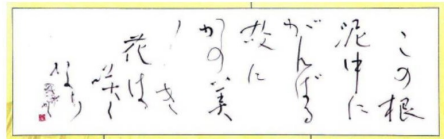 この根
泥中に
がんばる
故に
かの美
しき
花は
咲く
なり